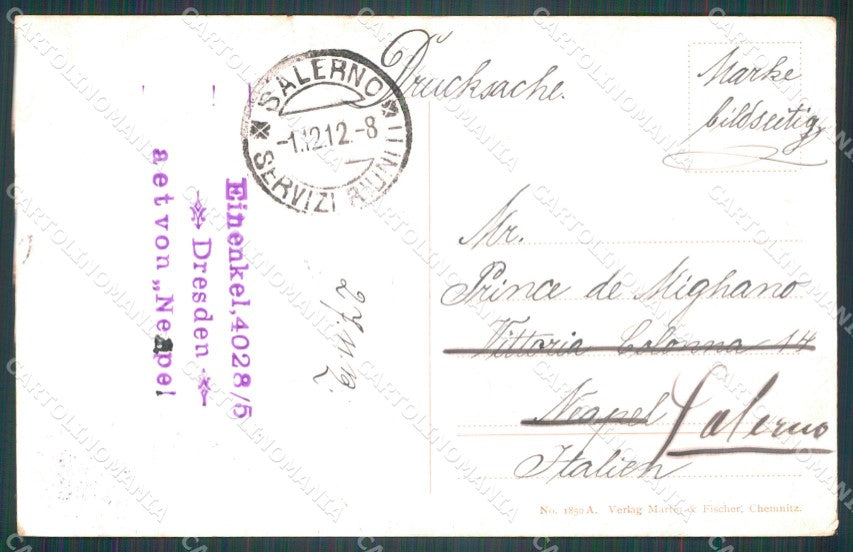 Drucksache.
Marke
bildseitig
SALERNO
-1.12.12.-8
SERVIZI RIUNITI
Einenkel, 4028/5
Dresden
aet von „Neapel
27.11.12.
Mr.
Prince de Mighano
Vittoria Colonna 14
Neapel Salerno
Italien
No. 1850 A. Verlag Martin & Fischer, Chemnitz.
CARTOLINOMANIA